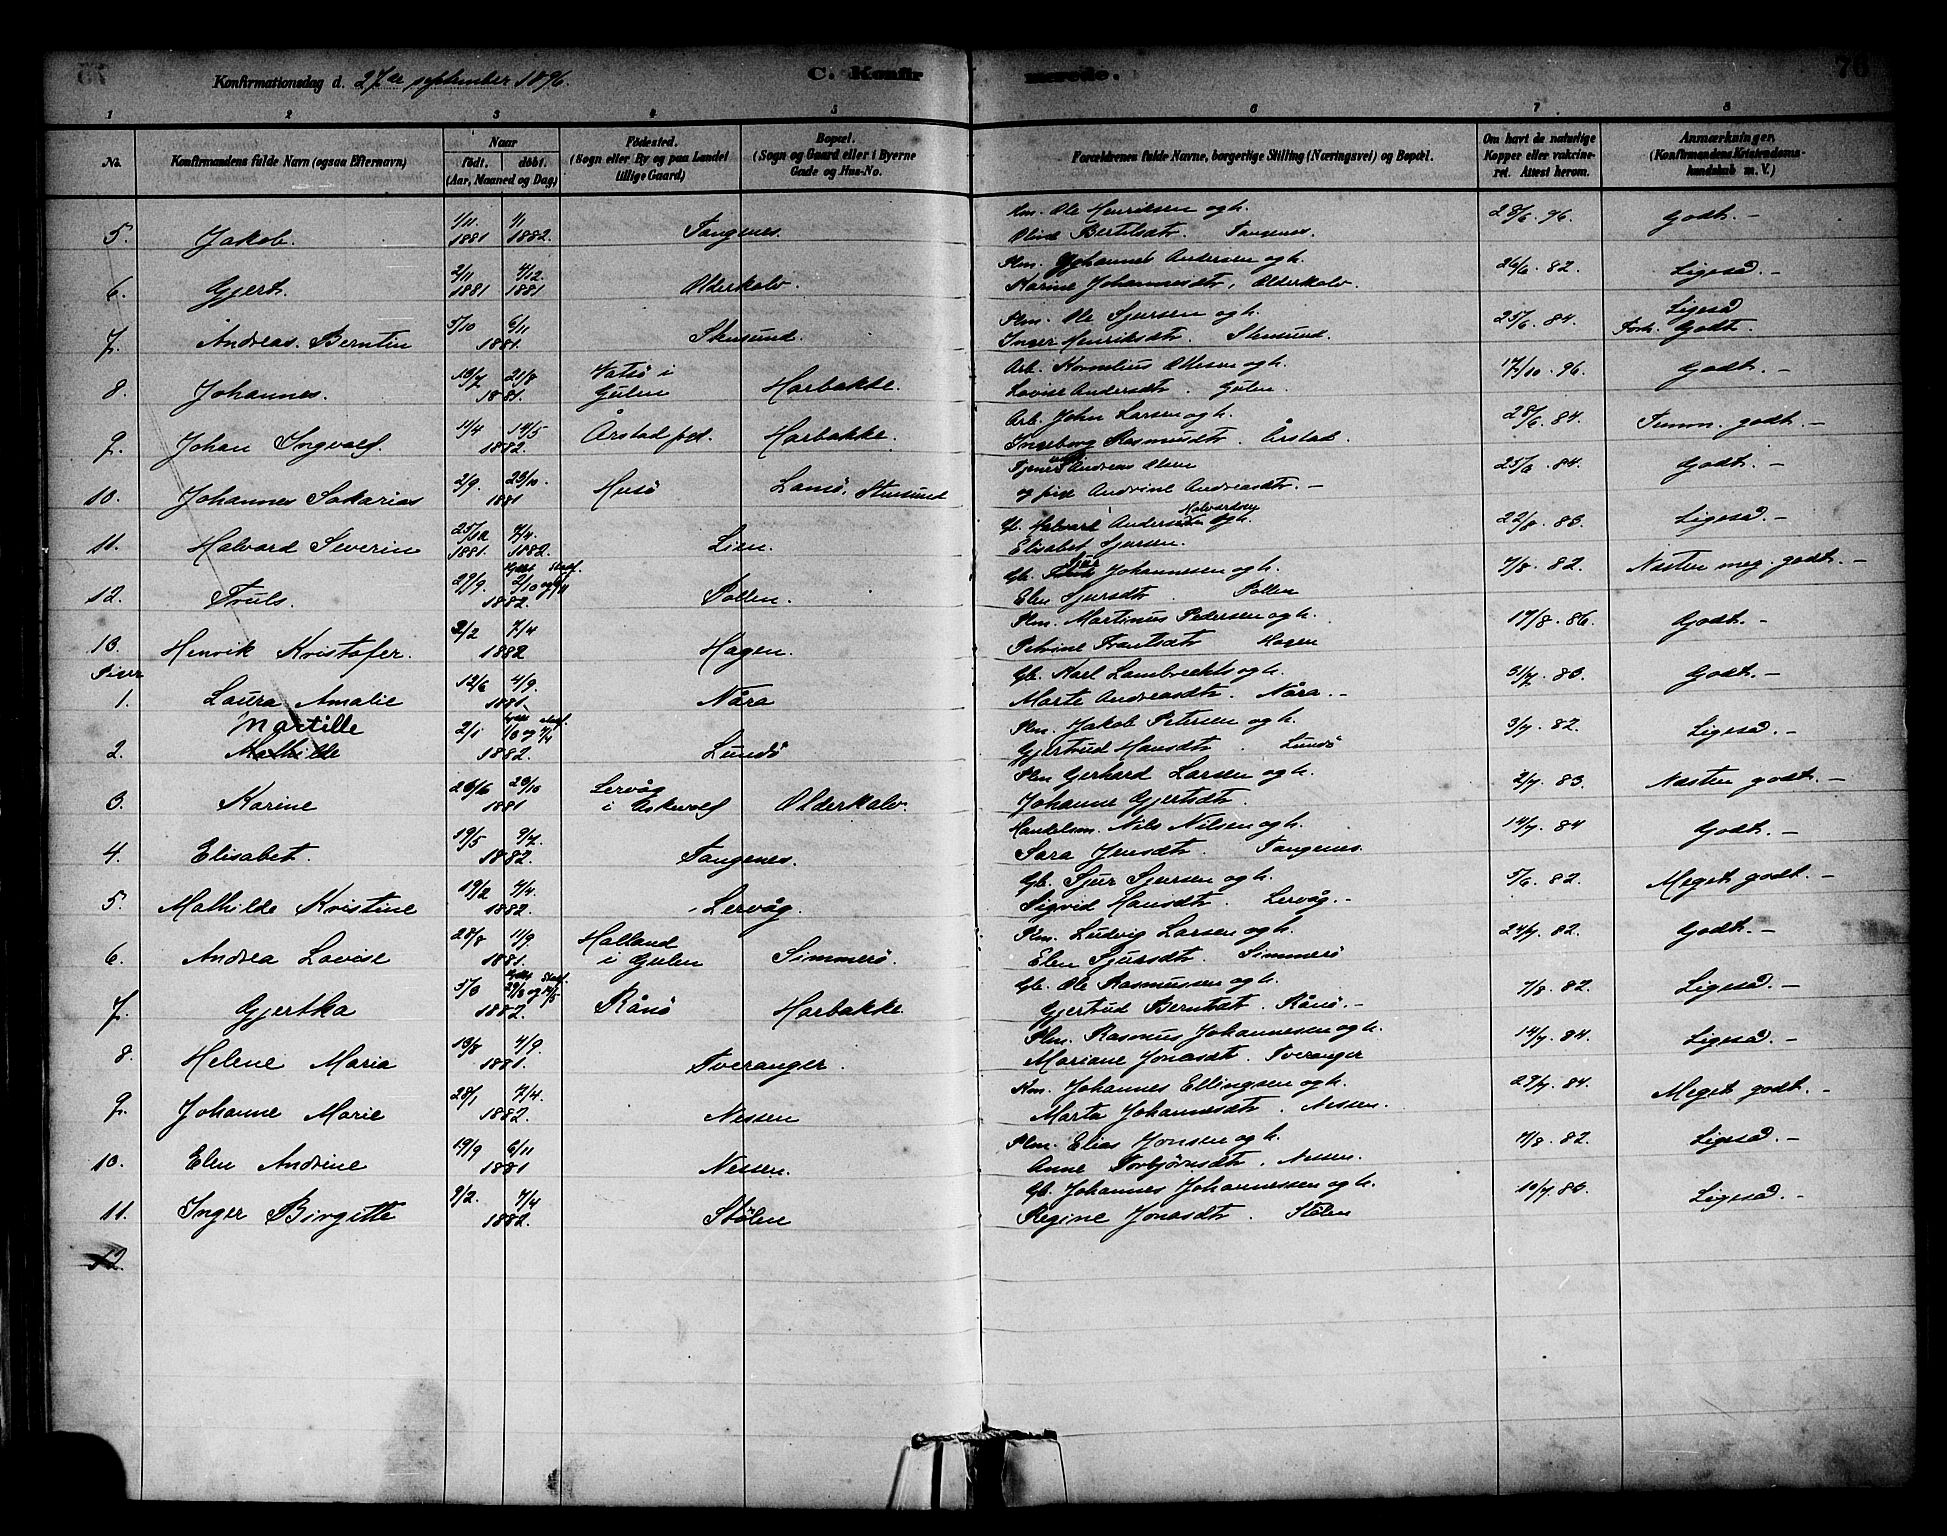 Konfirmationsdag d. 27de september 1896.
C. Konfir merede. 76
1 2 3 4 5 6 7 8
No. Konfirmandens fulde Navn (ogsaa Efternavn) Naar født. døbt. (Aar, Maaned og Dag) Fødested. (Sogn eller By og paa Landet tillige Gaard) Bopæl. (Sogn og Gaard eller i Byerne Gade og Hus-No. Forældrenes fulde Navne, borgerlige Stilling (Næringsvei) og Bopæl. Om havt de naturlige Kopper eller vakcineret. Attest herom. Anmærkninger, (Konfirmandens Kristendomskundskab m. V.)
5. Jakob. 1/11 1881 1/1 1882. Tangenes. Ole Henriksen og h. Oline Bertelsdtr. Tangenes. 28/6. 96. Godt. –
6. Gjert. 2/11 1881 4/12. 1881 Olderkalv. Plm. Johannes Andersen og h. Karine Johannesdtr, Olderkalv. 26/6. 82. Ligesaa. –
7. Andreas Berntin 5/10 6/11 1881. Stensund. Plm. Ole Sjursen og h. Inger Henriksdtr. Stensund. 25/6. 84. Ligesaa Godt.
8. Johannes. 21/8 1881. i Gulen Harbakke. Arb. Kornelius og h. Lovise Andersdtr. Gulen. 17/10. 96. Godt. –
9. Johan Ingvald. 1/4 14/5 1882. Årstad Harbakke. Arb. John Larsen og h. Ingeborg Rasmusdtr. Årstad. 28/6. 84. Temm. godt. –
10. Johannes Sakarias 2/9. 23/10. 1881 Husø Stensund Andreas Olsen og pige Andrine Andreasdtr. – 84. Godt. –
11. Halvard Severin 1881. 4/4. 1882. Lien. Halvard Andersen og h. Elisabet Sjursen. 22/8. 83. Ligesaa. –
12. Truls. 29/9. 1882. Pollen. Gb. Johannesen og h. Elen Sjursdtr. Pollen 7/8. 82. Næsten meg. godt. –
13. Henrik Kristofer. 2/2 7/4 1882 Hagen. Plm. Martinus Pedersen og h. Petrine Frantsdtr Hagen 17/8. 86. Godt. –
Piger
1. Laura Amalie 12/6 4/9. 1881. Nåra Gb. Karl Lambrechts og h. Marte Andreasdtr. Nåra. – 31/7. 83. Godt. –
2. Martille Mathilde 2/1 1882. Lundø Plm. Jakob Petersen og h. Gjertrud Hansdtr. Lundø 3/7. 82. Ligesaa. –
3. Karine 23/10 1881 Lervåg i Askevold Olderkalv. Plm Gerhard Larsen og h. Johanne Gjertsdtr. 2/7. 83. Næsten godt. –
4. Elisabet. 19/5 9/7. 1882. Tangenes. Handelsm. Nils Nilsen og h. Sara Jensdtr. Tangenes. 14/7. 84 Godt. –
5. Mathilde Kristine 19/2 4/4. 1882. Lervåg. Gb. Sjur Sjursen og h. Sigvid Hansdtr. Lervåg. – 5/6. 82. Meget godt. –
6. Andrea Lovise 28/8 11/9. 1881. Halland i Gulen Simmerø. Plm. Ludvig Larsen og h. Elen Sjursdtr. Simmerø 24/7. 82. Godt. –
7. Gjertka 5/3 1882. Rånø Harbakke. Gb. Ole Rasmussen og h. Gjertrud Berntsdt. Rånø. – 7/8. 82. Ligesaa. –
8. Helene Maria 13/8 4/9. 1881. Tveranger. Plm. Rasmus Johannesen og h. Mariane Jonasdtr. Tveranger 14/7. 84. Ligesaa. –
9. Johanne Marie 28/1 7/4. 1882. Nessen Km. Johannes Ellingsen og h. Marta Johannesdtr. Nessen. 29/7. 84. Meget godt. –
10. Elen Andrine 19/9 6/11 1881 Nessen. Plm. Elias Jonsen og h. Anne Torbjørnsdtr. Nessen. 7/8. 82. Ligesaa. –
11. Inger Birgitte 9/2. 4/4 1882. Stølen Gb. Johannes Johannessen og h. Regine Jonasdtr. Stølen 10/7. 83. Ligesaa. –
12.